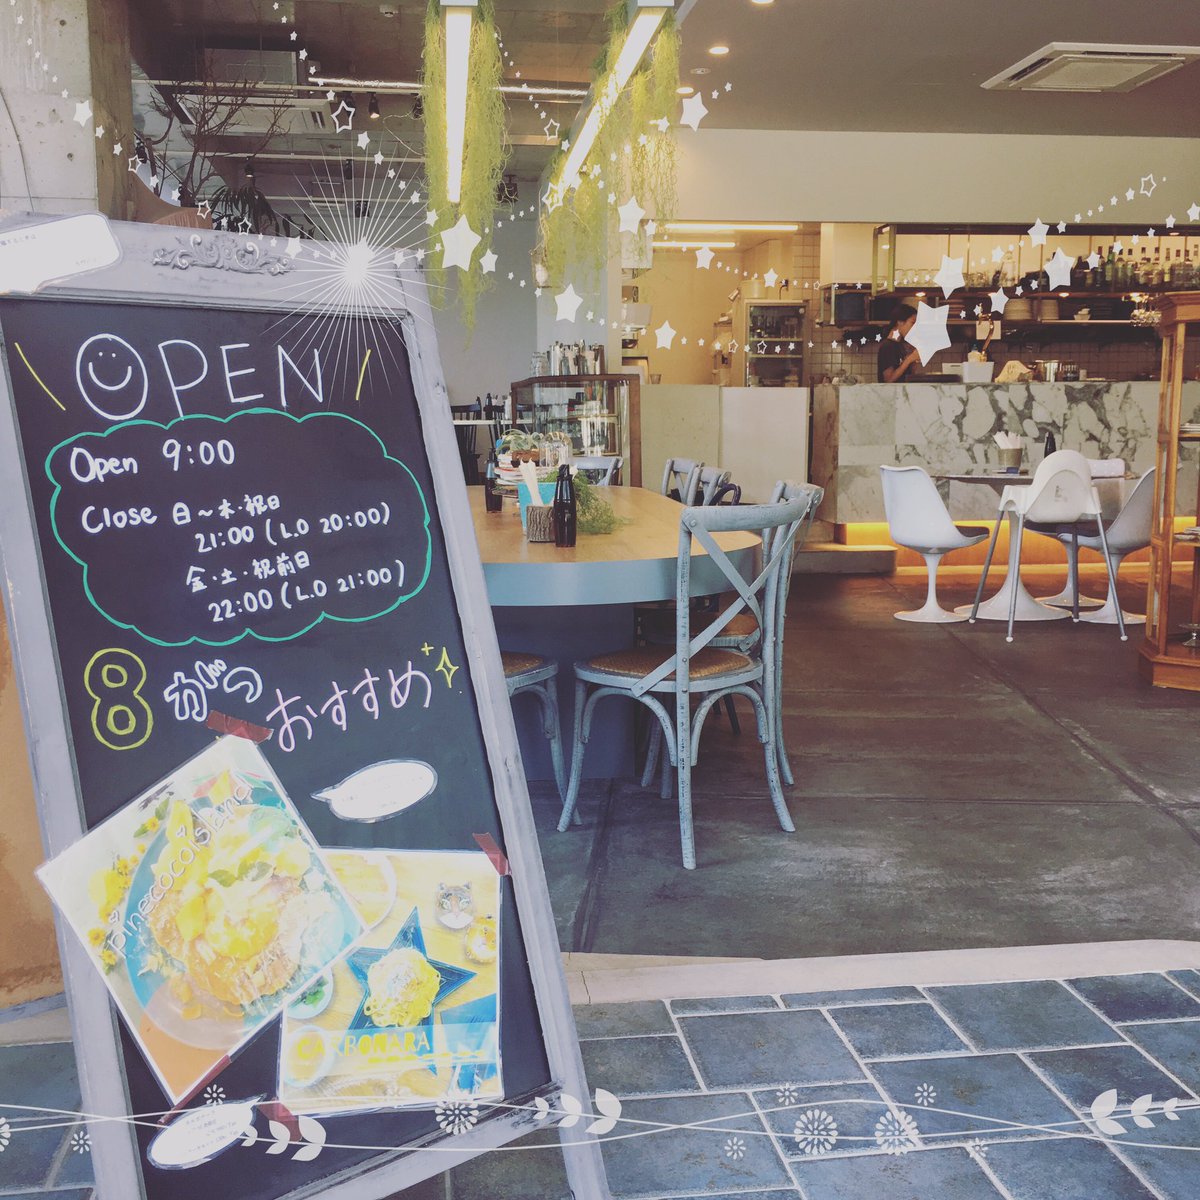 OPEN
Open 9:00
Close 日〜木・祝日
21:00 (L.O 20:00)
金・土・祝前日
22:00 (L.O 21:00)
8がつ
おすすめ
pinecocoisland
CARBONARA